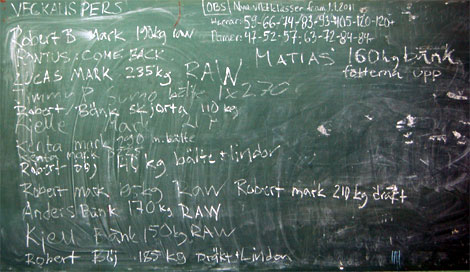 VECKANS PERS
OBS! Nya viktklasser from 1.1.2011
Herrar: 59-66-74-83-93-105-120-120+
Damer: 47-52-57-63-72-84-84+
Robert B Mark 190kg raw
PONTUS: COME BACK
LUCAS MARK 235kg RAW
MATIAS 160kg bänk
fötterna upp
bälte 1x270
Robert Bänk skjorta 110kg
Kjelle
Kerita mark m. bälte
Robert Böj kg bälte+lindor
Robert mark kg Raw Robert mark 210kg dräkt
Anders Bänk 170kg RAW
Kjell Bänk 150kg RAW
Robert Böj 185kg Dräkt+Lindor